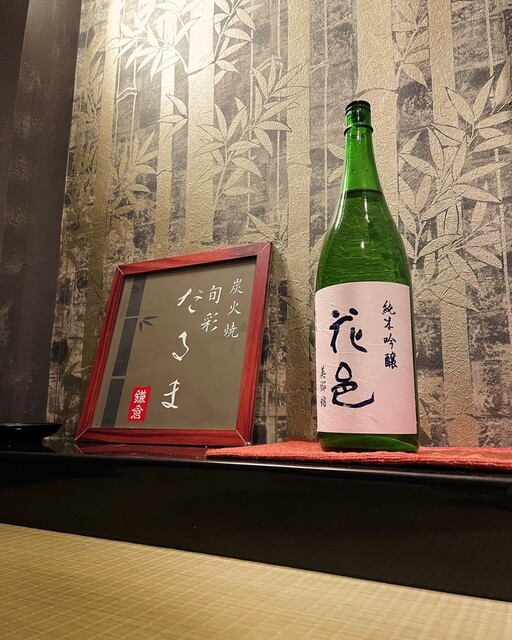 炭火焼
旬彩
だるま
鎌倉
純米吟醸
花邑
美郷錦